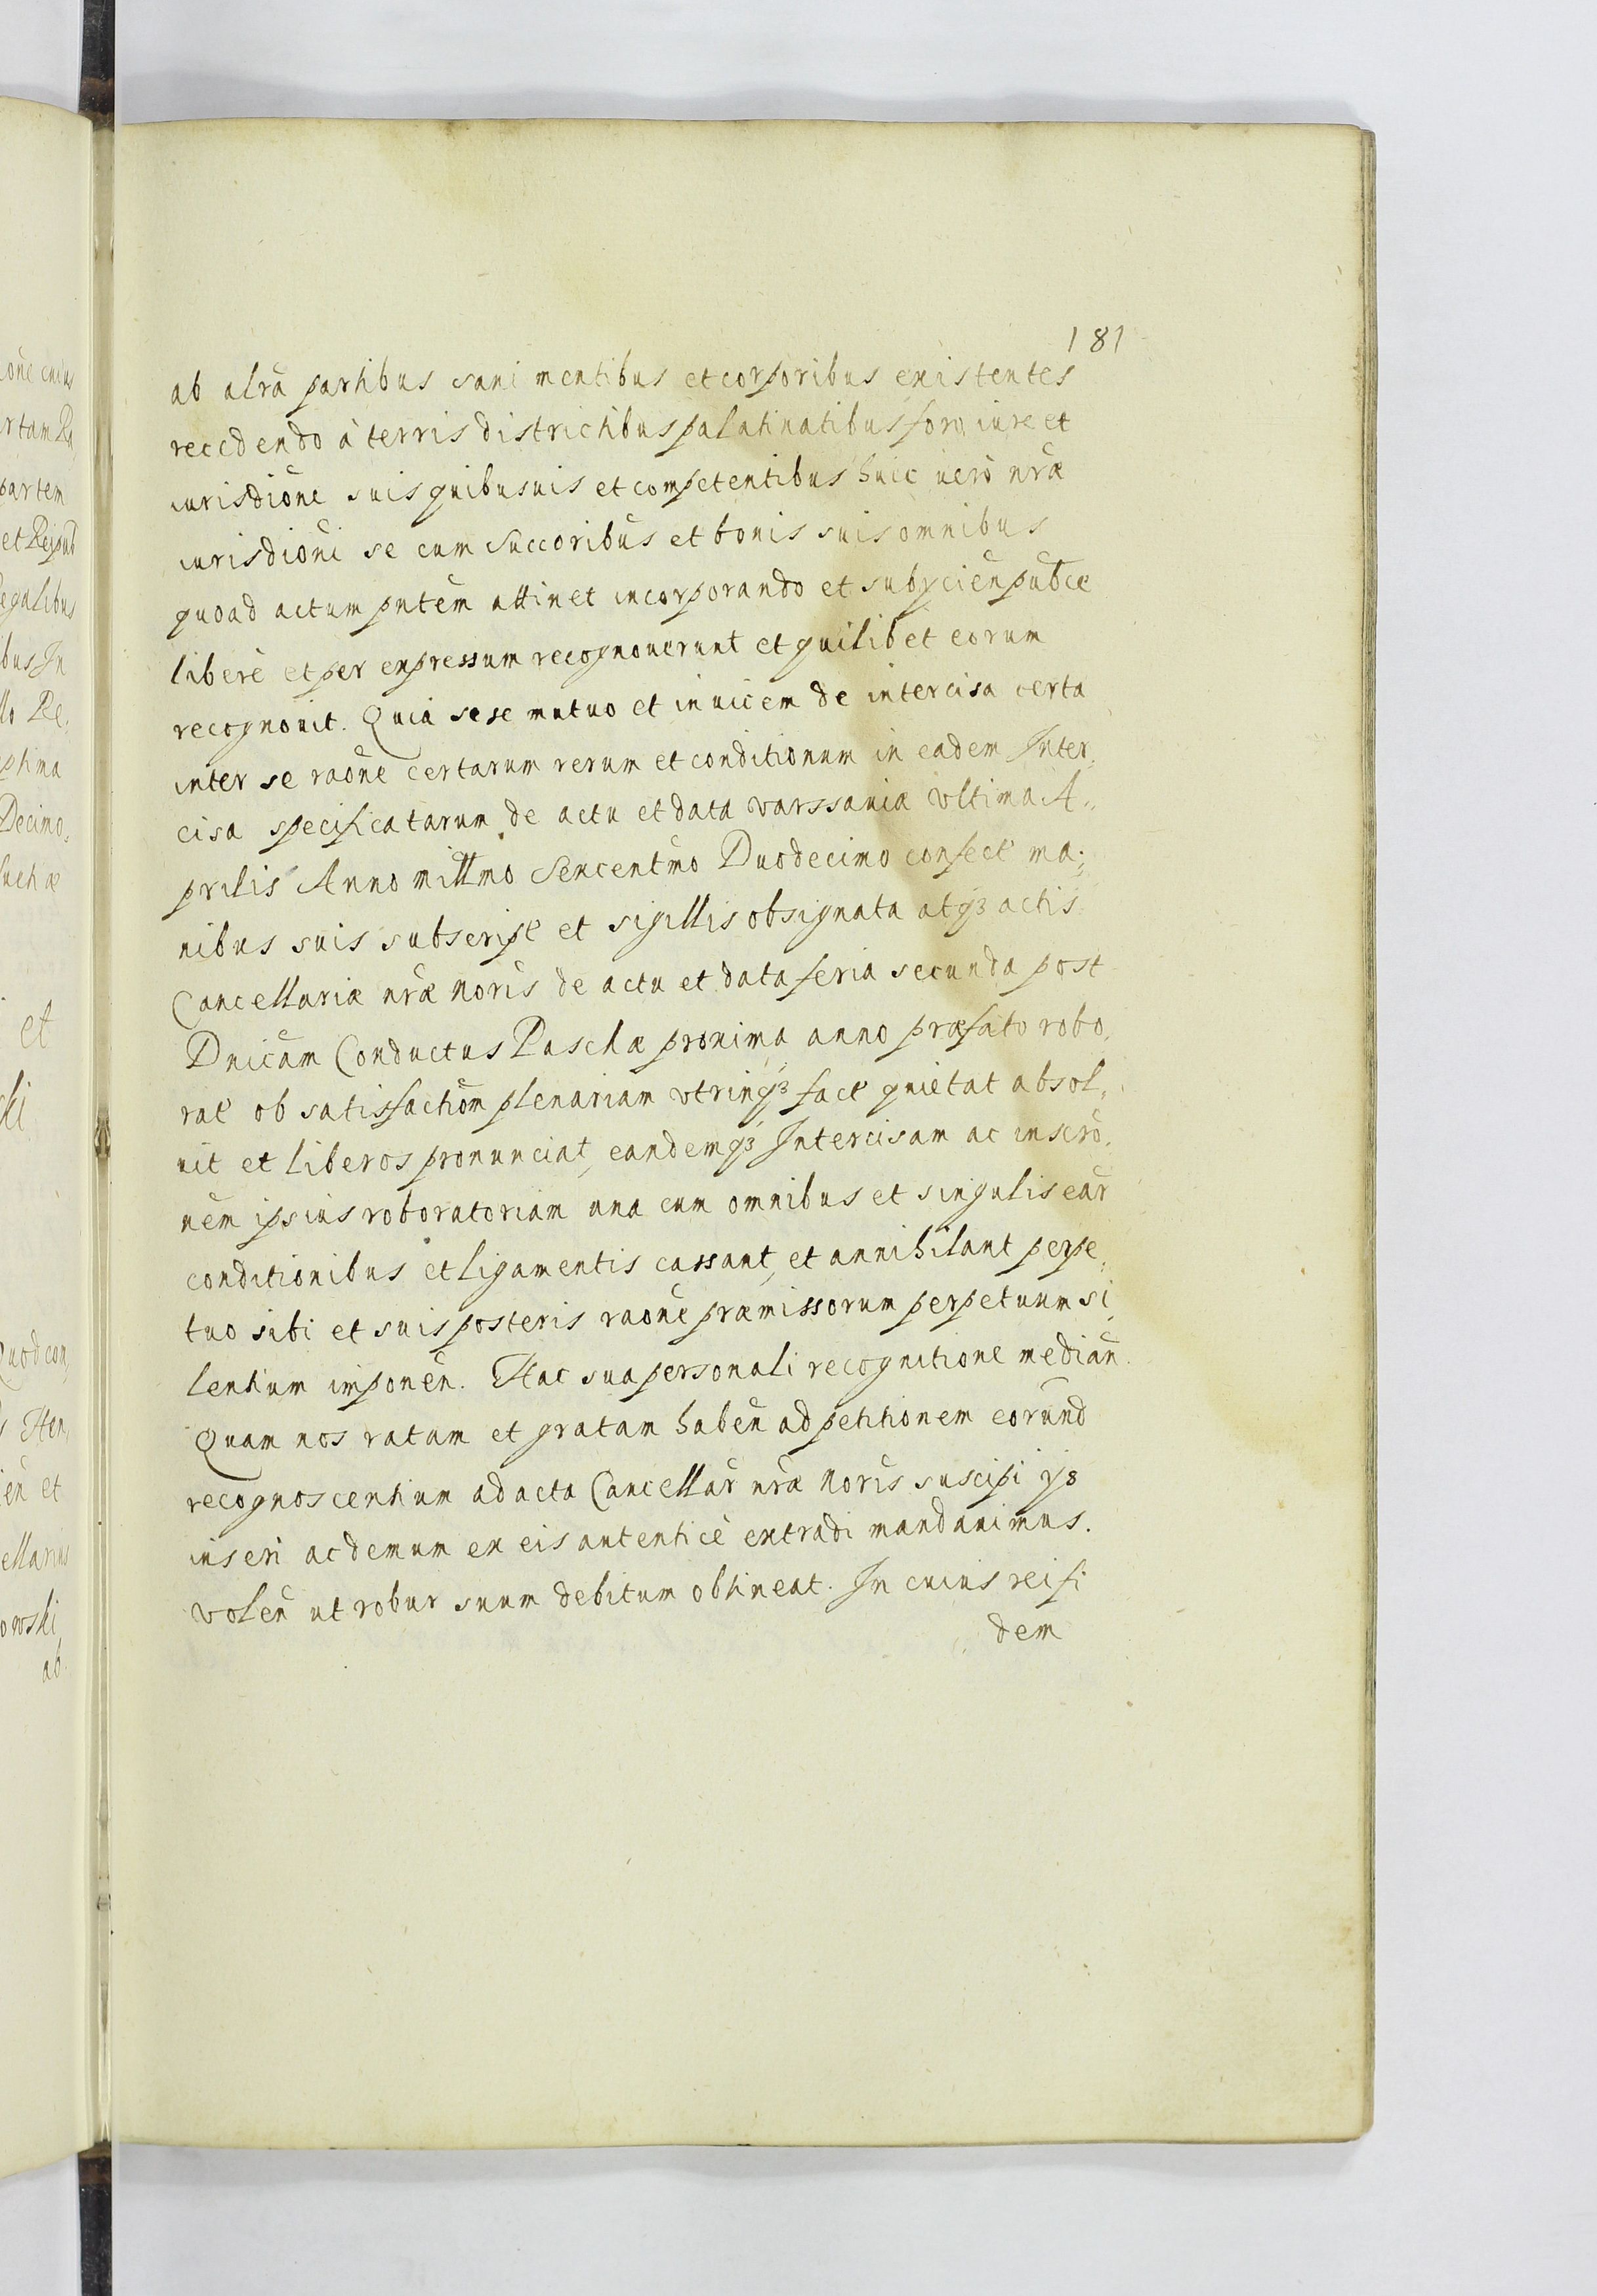 181
ab alrã partibus sani mentibus et corporibus existentes
recedendo à terris districtibus palatinatibus foro iure et
iurisdiõne suis quibusuis et competentibus huic uerò nr̃æ
iurisdiõni se cum succoribũs et bonis suis omnibus
quoad actum pñtem attinet incorporando et subijcieñ publ̃ce
liberè et per expressum recognouerunt et quilibet eorum
recognouit. Quia sese mutuo et inuicem de intercisa certa
inter se raõne certarum rerum et conditionum in eadem Inter,
cisa specificatarum de actu et data varssauiæ vltima A,,
prilis Anno millmo Sexcentmo Duodecimo confect̃ ma,,
nibus suis subscript̃ et sigillis obsignata atqȝ actis
Cancellariæ nr̃æ noris de actu et data feria secunda post
Dnicam Conductus Paschæ proxima anno præfato robo,
rat̃ ob satisfactiõm plenariam vtrinqȝ fact̃ quietat absol,,
uit et liberos pronunciat, eandemqȝ Intercisam ac inscrõ,
nem ipsius roboratoriam una cum omnibus et singulis ear̃
conditionibus et ligamentis cassant, et annihilant perpe,
tuo sibi et suis posteris raõne præmissorum perpetuum si,
lentium imponeñ. Hac sua personali recognitione mediañ.
Quam nos ratam et gratam habeñ ad petitionem eorund̃
recognoscentium ad acta Cancellar̃ nr̃æ noris suscipi qȝ
inseri ac demum ex eis autenticè extradi mandauimus.
voleñ ut robur suum debitum obtineat. In cuius rei fi
dem
et
partem
egalibus
ellarius
owski
ab